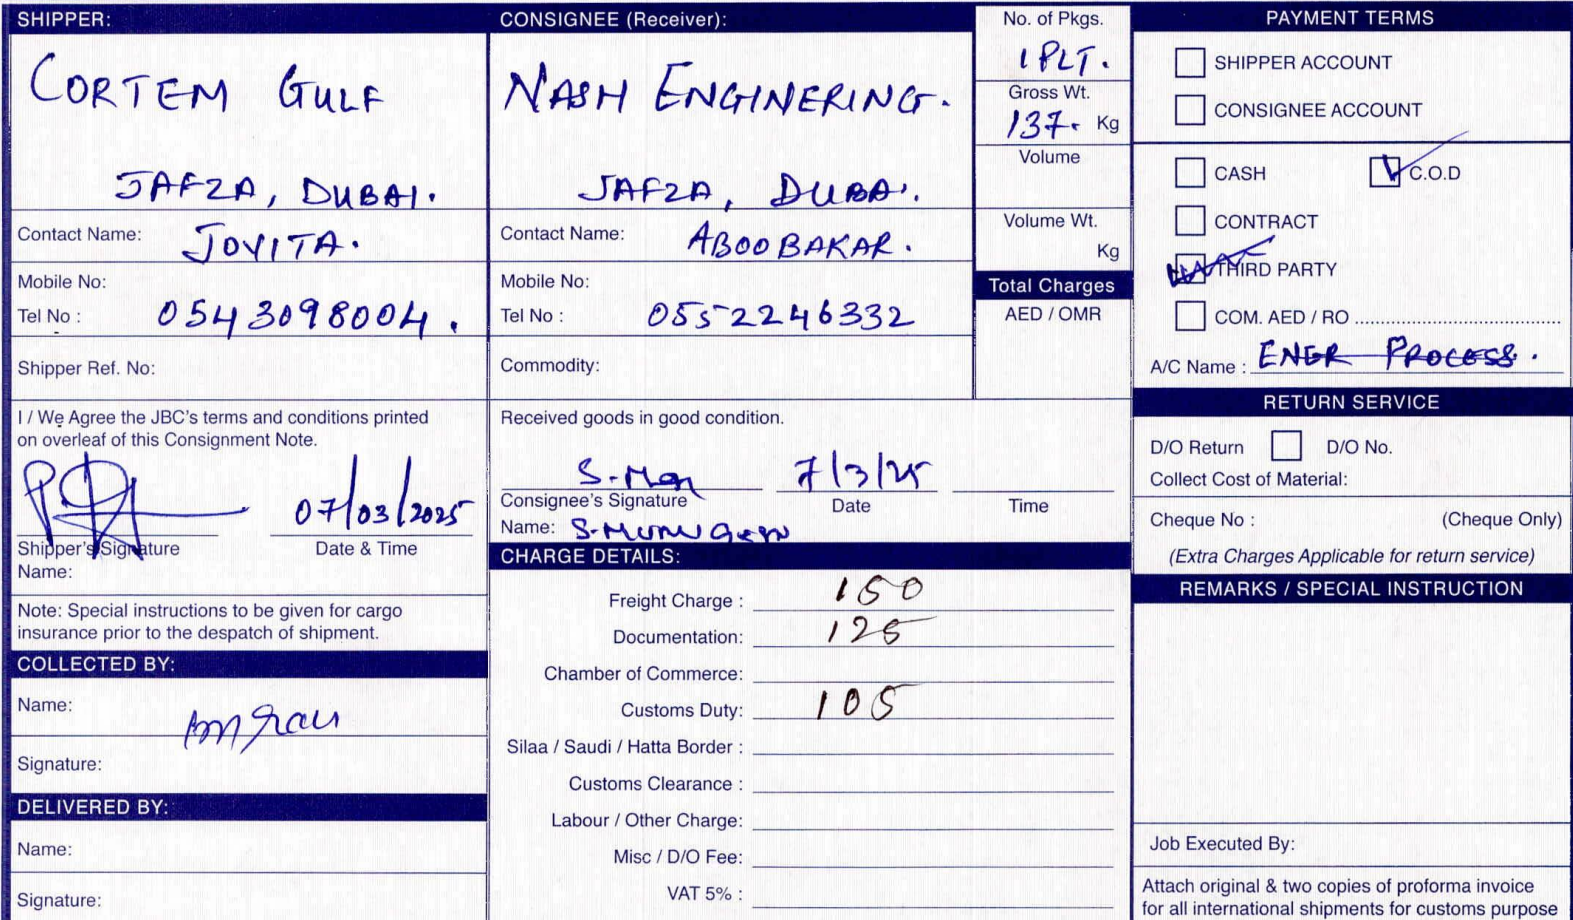 SHIPPER:
CORTEM GULF
JAFZA, DUBAI.
Contact Name: JOVITA.
Mobile No:
Tel No : 0543098004.
Shipper Ref. No:
I / We Agree the JBC's terms and conditions printed
on overleaf of this Consignment Note.
07/03/2025
Shipper's Signature Date & Time
Name:
Note: Special instructions to be given for cargo
insurance prior to the despatch of shipment.
COLLECTED BY:
Name:
Signature:
DELIVERED BY:
Name:
Signature:
CONSIGNEE (Receiver):
NASH ENGINERING.
JAFZA, DUBAI.
Contact Name: ABOOBAKAR.
Mobile No:
Tel No : 0552246332
Commodity:
Received goods in good condition.
7/3/25
Consignee's Signature Date Time
Name:
No. of Pkgs.
1 PLT.
Gross Wt.
137. Kg
Volume
Volume Wt.
Kg
Total Charges
AED / OMR
CHARGE DETAILS:
Freight Charge : 150
Documentation: 125
Chamber of Commerce:
Customs Duty: 105
Silaa / Saudi / Hatta Border :
Customs Clearance :
Labour / Other Charge:
Misc / D/O Fee:
VAT 5% :
PAYMENT TERMS
SHIPPER ACCOUNT
CONSIGNEE ACCOUNT
CASH C.O.D
CONTRACT
THIRD PARTY
COM. AED / RO
A/C Name : ENER PROCESS.
RETURN SERVICE
D/O Return D/O No.
Collect Cost of Material:
Cheque No : (Cheque Only)
(Extra Charges Applicable for return service)
REMARKS / SPECIAL INSTRUCTION
Job Executed By:
Attach original & two copies of proforma invoice
for all international shipments for customs purpose